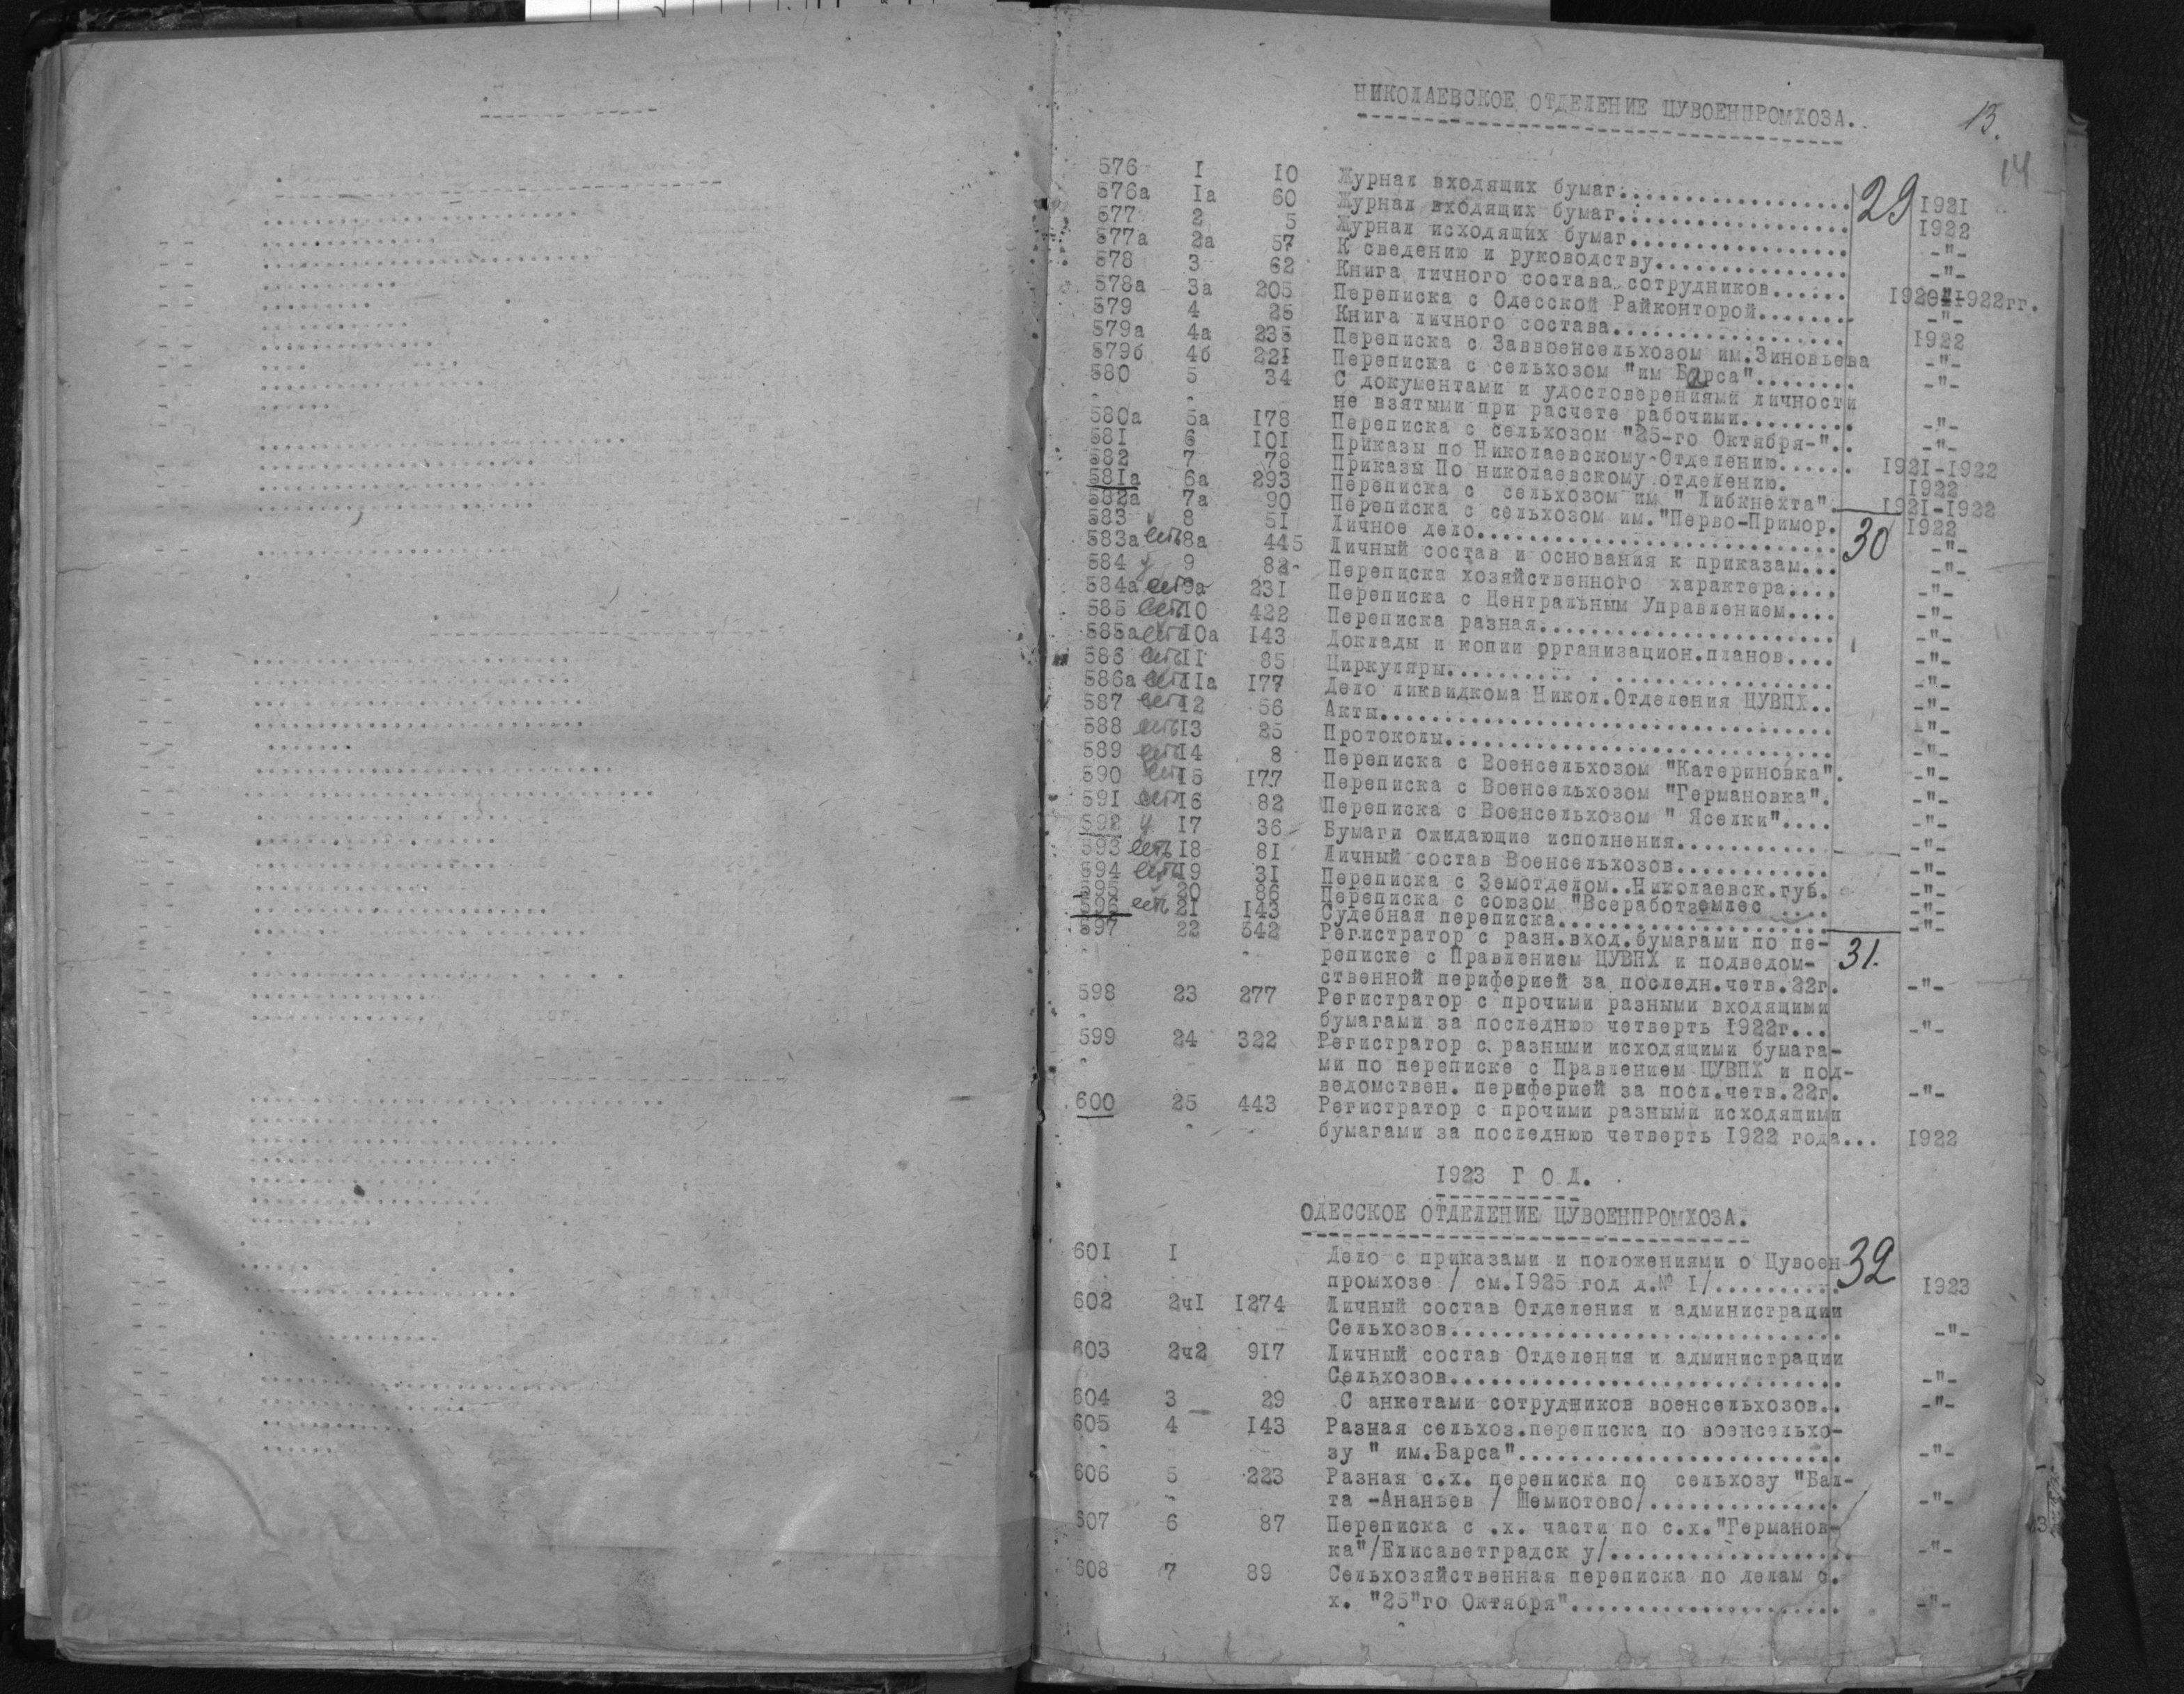 НИКОЛАЕВСКОЕ ОТДЕЛЕНИЕ ЦУВОЕНПРОМХОЗА.
13.
14
576 I 10 Журнал входящих бумаг................... 29 1921
576а Iа 60 Журнал входящих бумаг................... 1922
577 2 5 Журнал исходящих бумаг.................. -"-
577а 2а 57 К сведению и руководству................ -"-
578 3 62 Книга личного состава сотрудников...... 1920-1922гг.
578а 3а 205 Переписка с Одесской Райконторой........ -"-
579 4 25 Книга личного состава.................. 1922
579а 4а 235 Переписка с Заввоенсельхозом им.Зиновьева -"-
579б 4б 221 Переписка с сельхозом "им Барса"........ -"-
580 5 34 С документами и удостоверениями личности
не взятыми при расчете рабочими......... -"-
580а 5а 178 Переписка с сельхозом "25-го Октября-".. -"-
581 6 101 Приказы по Николаевскому Отделению...... 1921-1922
582 7 78 Приказы По николаевскому отделению. 1922
581а 6а 293 Переписка с сельхозом им " Либкнехта" 1921-1922
582а 7а 90 Переписка с сельхозом им."Перво-Примор. 1922
583 8 51 Личное дело............................. 30 -"-
583а есть 8а 445 Личный состав и основания к приказам... -"-
584 9 82 Переписка хозяйственного характера.... -"-
584а есть 9а 231 Переписка с Центральным Управлением.... -"-
585 есть 10 422 Переписка разная........................ -"-
585а есть 10а 143 Доклады и копии организацион.планов.... -"-
586 есть 11 85 Циркуляры.......... . ................. -"-
586а есть 11а 177 Дело ликвидкома Никол.Отделения ЦУВПХ.. -"-
587 есть 12 56 Акты.................................... -"-
588 есть 13 25 Протоколы............................... -"-
589 есть 14 8 Переписка с Военсельхозом "Катериновка". -"-
590 есть 15 177 Переписка с Военсельхозом "Германовка". -"-
591 есть 16 82 Переписка с Военсельхозом " Яселки".... -"-
592 17 36 Бумаги ожидающие исполнения............ -"-
593 есть 18 81 Личный состав Военсельхозов............. -"-
594 есть 19 31 Переписка с Земотделом..Николаевск.губ. -"-
595 20 86 Переписка с союзом "Всеработземлес .... -"-
596 есть 21 143 Судебная переписка...................... -"-
597 22 542 Регистратор с разн.вход.бумагами по пе-
реписке с Правлением ЦУВПХ и подведом- 31.
ственной периферией за последн.четв.22г. -"-
598 23 277 Регистратор с прочими разными входящими
бумагами за последнюю четверть 1922г... -"-
599 24 322 Регистратор с разными исходящими бумага-
ми по переписке с Правлением ЦУВПХ и под-
ведомствен. периферией за посл.четв.22г. -"-
600 25 443 Регистратор с прочими разными исходящими
бумагами за последнюю четверть 1922 года... 1922
1923 Г О Д.
ОДЕССКОЕ ОТДЕЛЕНИЕ ЦУВОЕНПРОМХОЗА.
601 I Дело с приказами и положениями о Цувоен- 32
промхозе / см.1925 год д.№ 1/.......... 1923
602 2ч1 1274 Личный состав Отделения и администрации
Сельхозов............................... -"-
603 2ч2 917 Личный состав Отделения и администрации
Сельхозов............................... -"-
604 3 29 С анкетами сотрудников военсельхозов.. -"-
605 4 143 Разная сельхоз.переписка по военсельхо-
зу " им.Барса".......................... -"-
606 5 223 Разная с.х. переписка по сельхозу "Бал-
та -Ананьев / Шемиотово/................ -"-
607 6 87 Переписка с .х. части по с.х."Германов-
ка"/Елисаветградск у/................... -"-
608 7 89 Сельхозяйственная переписка по делам с.
х. "25"го Октября"...................... -"-